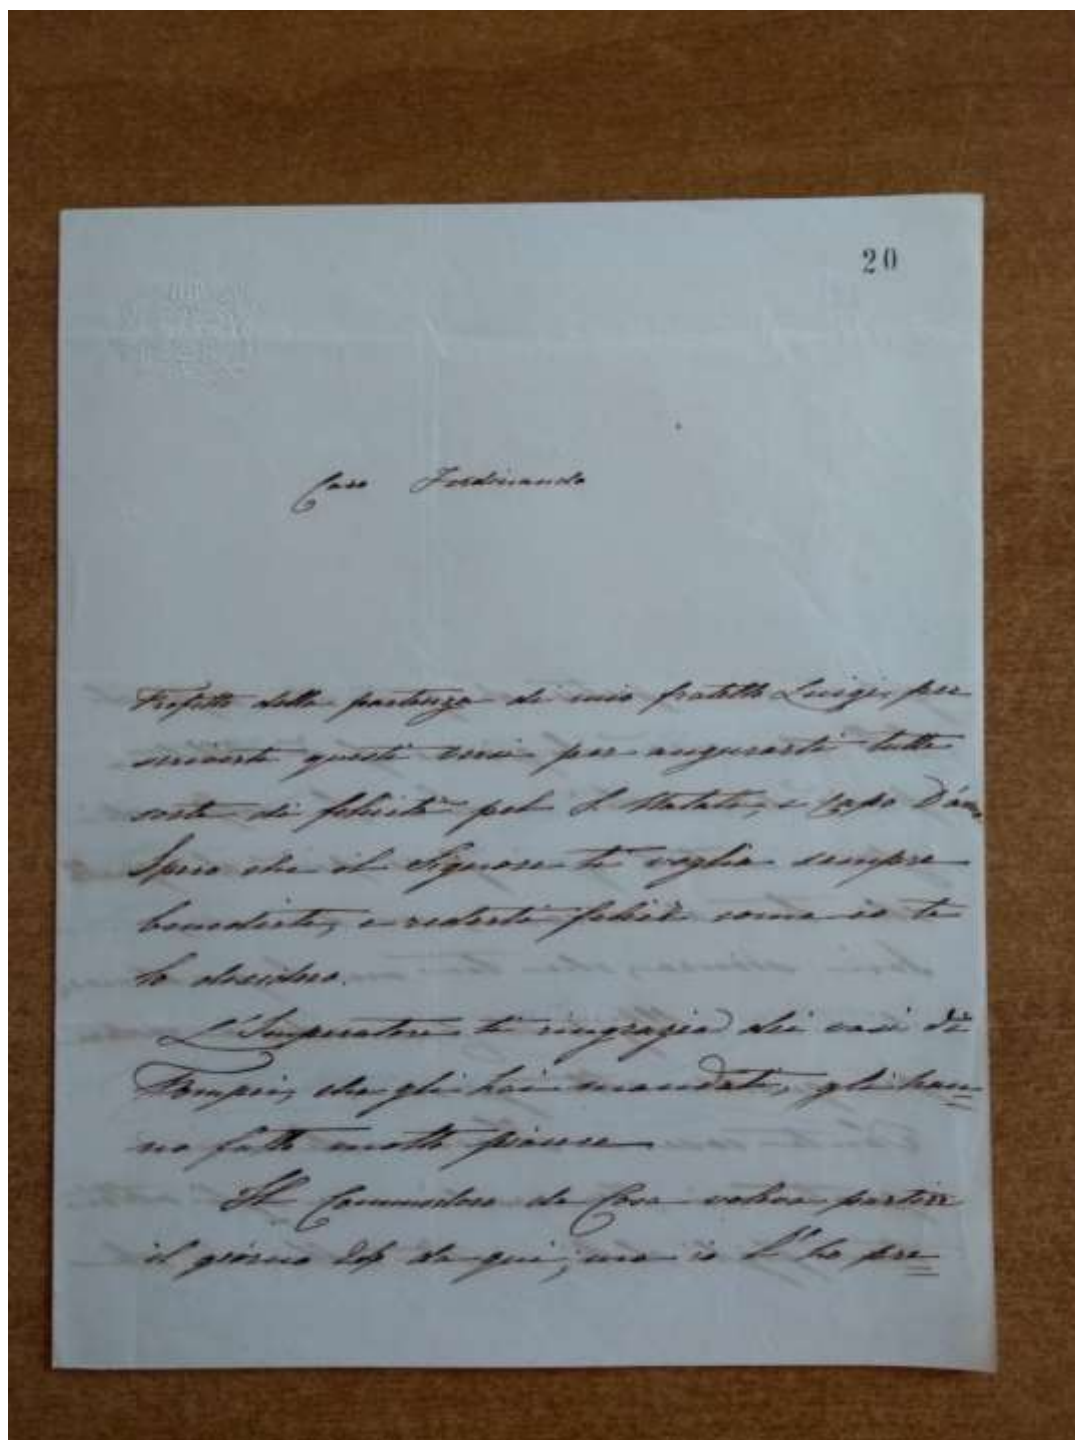 20
Caro Ferdinando
Profitto della partenza di mio fratello Luigi per
scriverti questi versi per augurarti tutte
sorte di felicità pel S. Natale, e Capo D'anno
Spero che il Signore ti voglia sempre
benedirti, e renderti felice come io te
lo desidero.
L'Imperatore ti ringrazia dei vasi di
Pompei, che gli hai mandati, gli han=
no fatto molto piacere
Il Commodoro de Cosa voleva partire
il giorno da qui, ma io l'ho pre=